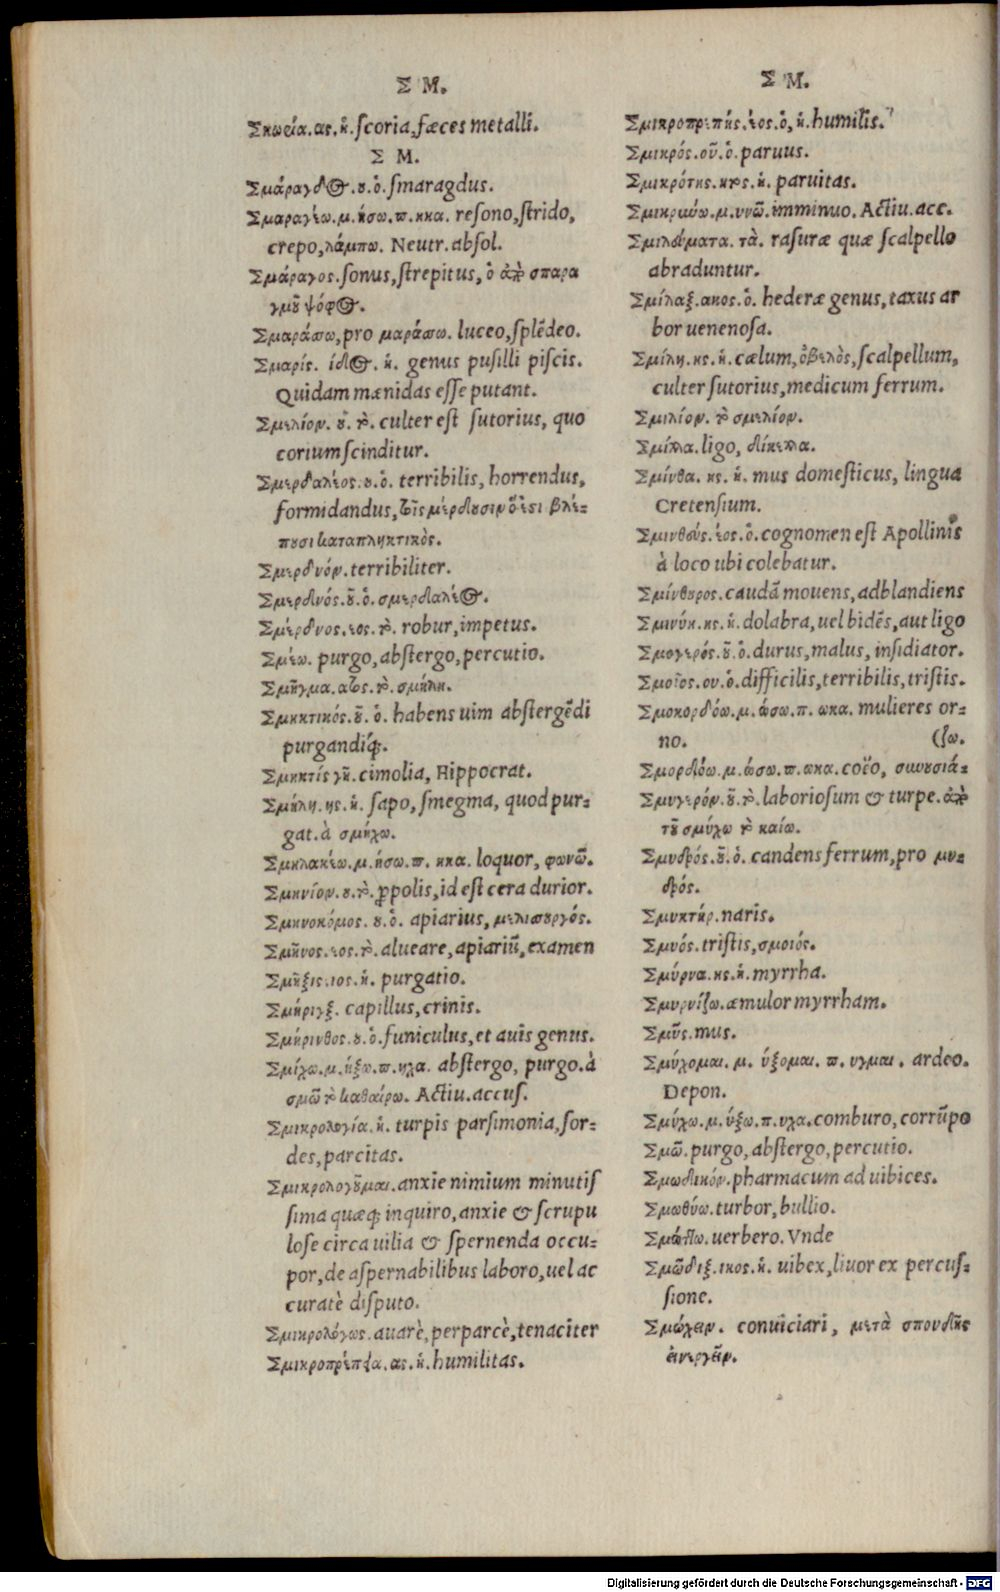 Σ Μ.
Σκωρία.ας.ἡ.ſcoria,fæces metalli.
Σ Μ.
Σμάραγδος.ου.ὁ.ſmaragdus.
Σμαραγέω.μ.ήσω.π.ηκα. reſono,ſtrido,
crepo,λάμπω. Neutr.abſol.
Σμάραγος.ſonus,ſtrepitus, ὁ ἀπὸ σπαρα
γμοῦ ψόφος.
Σμαράσσω,pro μαράσσω. luceo,ſplēdeo.
Σμαρίς. ίδος. ἡ. genus puſilli piſcis.
Quidam mænidas eſſe putant.
Σμελίον. ου. τὸ. culter eſt ſutorius, quo
corium ſcinditur.
Σμερδαλέος.ου.ὁ. terribilis, horrendus,
formidandus, τοῖς μέρδουσιν ὅ ἐστι βλέ=
πουσι καταπληκτικὸς.
Σμερδνόν.terribiliter.
Σμερδνός.οῦ.ὁ.σμερδαλέος.
Σμέρδνος.εος.τὸ. robur,impetus.
Σμέω. purgo,abſtergo,percutio.
Σμῆγμα.ατος.τὸ.σμήλη.
Σμηκτικός.οῦ. ὁ. habens uim abſtergēdi
purgandiq;.
Σμηκτίς γῆ. cimolia, Hippocrat.
Σμήλη.ης.ἡ. ſapo, ſmegma, quod pur=
gat.à σμήχω.
Σμηλακέω.μ.ήσω.π. ηκα. loquor, φωνῶ.
Σμηνίον.ου.τὸ.ꝓpolis,id eſt cera durior.
Σμηνοκόμος.ου.ὁ. apiarius, μελισσουργός.
Σμῆνος.εος.τὸ.alueare,apiariū,examen
Σμῆξις.ιος.ἡ. purgatio.
Σμήριγξ. capillus,crinis.
Σμήρινθος.ου.ὁ.funiculus,et auis genus.
Σμήχω.μ.ήξω.π.ηχα. abſtergo, purgo.à
σμῶ τὸ καθαίρω. Actiu.accuſ.
Σμικρολογία.ἡ. turpis parſimonia,ſor=
des,parcitas.
Σμικρολογοῦμαι.anxie nimium minutiſ
ſima quæq; inquiro,anxie & ſcrupu
loſe circa uilia & ſpernenda occu=
por,de aſpernabilibus laboro,uel ac
curatè diſputo.
Σμικρολόγως.auarè,perparcè,tenaciter
Σμικροπρέπεια.ας.ἡ.humilitas.
Σ Μ.
Σμικροπρεπής.έος.ὁ,ἡ.humilis.
Σμικρός.οῦ.ὁ.paruus.
Σμικρότης.ητος.ἡ. paruitas.
Σμικρύνω.μ.υνῶ.imminuo. Actiu.acc.
Σμιλεύματα. τὰ. raſuræ quæ ſcalpello
abraduntur.
Σμίλαξ.ακος.ὁ. hederæ genus,taxus ar
bor uenenoſa.
Σμίλη.ης.ἡ. cælum,ὀβελὸς,ſcalpellum,
culter ſutorius,medicum ferrum.
Σμιλίον. τὸ σμελίον.
Σμίλλα.ligo, δίκελλα.
Σμίνθα. ης. ἡ. mus domeſticus, lingua
Cretenſium.
Σμινθεύς.έος.ὁ.cognomen eſt Apollinis
à loco ubi colebatur.
Σμίνθυρος.caudā mouens,adblandiens
Σμινύη.ης.ἡ. dolabra,uel bidēs,aut ligo
Σμογερός.οῦ.ὁ.durus,malus, inſidiator.
Σμοῖος.ου.ὁ.difficilis,terribilis,triſtis.
Σμοκορδόω.μ.ώσω.π. ωκα. mulieres or=
no. (ζω.
Σμορδόω.μ.ώσω.π.ωκα.coëo, συνουσιά=
Σμυγερόν.οῦ.τὸ.laborioſum & turpe.ἀπὸ
τοῦ σμύχω τὸ καίω.
Σμυδρός.οῦ.ὁ. candens ferrum,pro μυ=
δρός.
Σμυκτήρ.naris.
Σμυός.triſtis,σμοιός.
Σμύρνα.ης.ἡ.myrrha.
Σμυρνίζω.æmulor myrrham.
Σμῦς.mus.
Σμύχομαι. μ. ύξομαι. π. υγμαι. ardeo.
Depon.
Σμύχω.μ.ύξω.π.υχα.comburo,corrūpo
Σμῶ.purgo,abſtergo,percutio.
Σμωδικόν.pharmacum ad uibices.
Σμωθύω.turbor,bullio.
Σμώττω.uerbero.Vnde
Σμῶδιξ.ικος.ἡ. uibex,liuor ex percuſ=
ſione.
Σμώχειν. conuiciari, μετὰ σπουδῆς
ἐνεργεῖν.
Digitalisierung gefördert durch die Deutsche Forschungsgemeinschaft - DFG